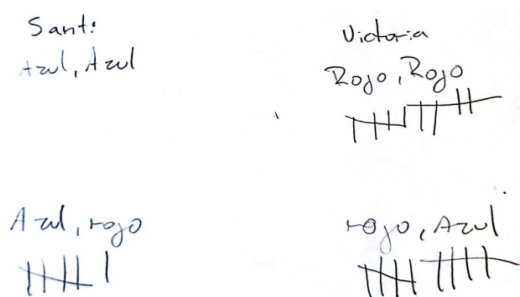 Santi
Azul, Azul
Victoria
Rojo, Rojo
Azul, rojo
rojo, Azul